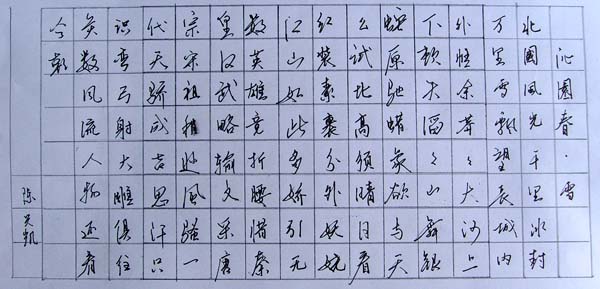 沁園春·雪
北國風光千里冰封
万里雪飘望长城内
外惟余莽々大河上
下顿失滔々山舞银
蛇原驰蜡象欲与天
公试比高须晴日看
红装素裹分外妖娆
江山如此多娇引无
数英雄竞折腰惜秦
皇汉武略输文采唐
宗宋祖稍逊風骚一
代天骄成吉思汗只
识弯弓射大雕俱往
矣数風流人物还看
今朝
陈凯